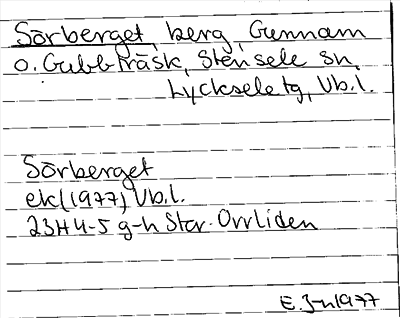 Sörberget, berg, Gunnarn
o. Gubbträsk, Stensele sn,
Lycksele tg, Vb.l.
Sörberget
ek (1977) Vb.l.
23H 4-5 g-h Stor-Orrliden
E. J-n 1977